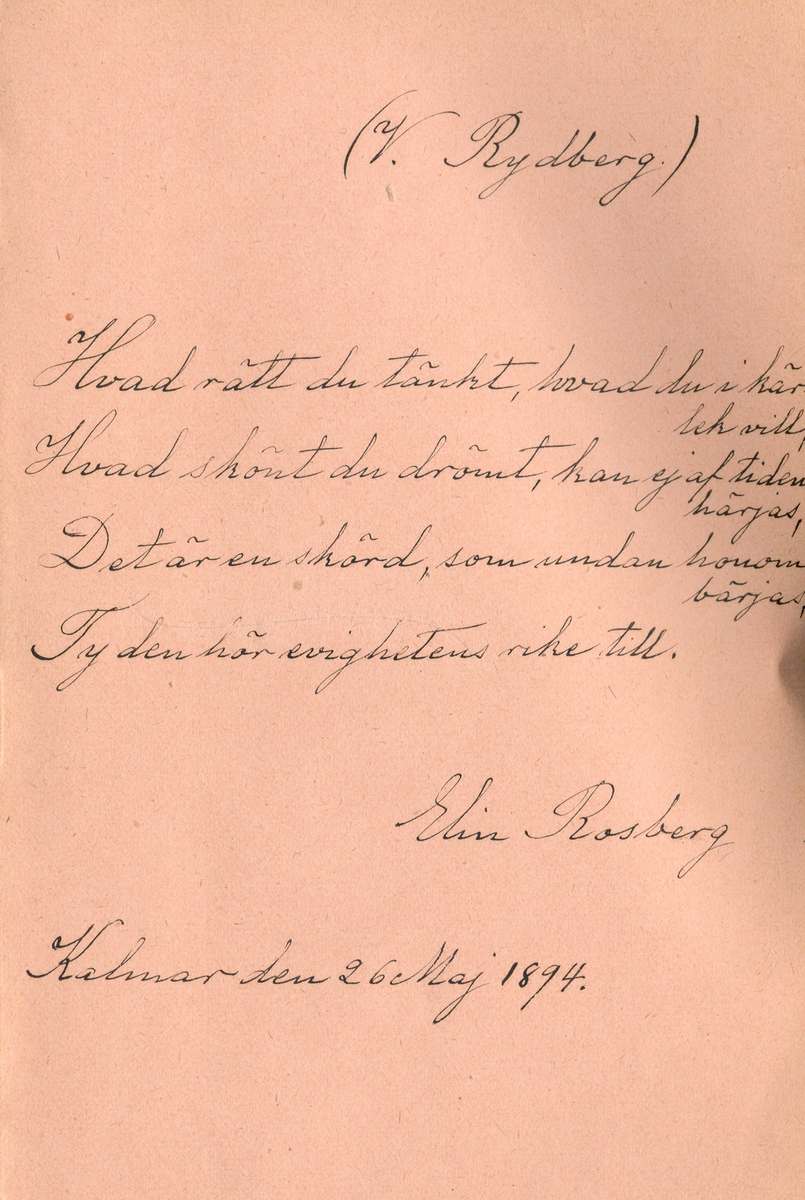 (V. Rydberg.)
Hvad rätt du tänkt, hvad du i kär
lek vill,
Hvad skönt du drömt, kan ej af tiden
härjas,
Det är en skörd, som undan honom
bärjas,
Ty den hör evighetens rike till.
Elin Rosberg
Kalmar den 26 Maj 1894.